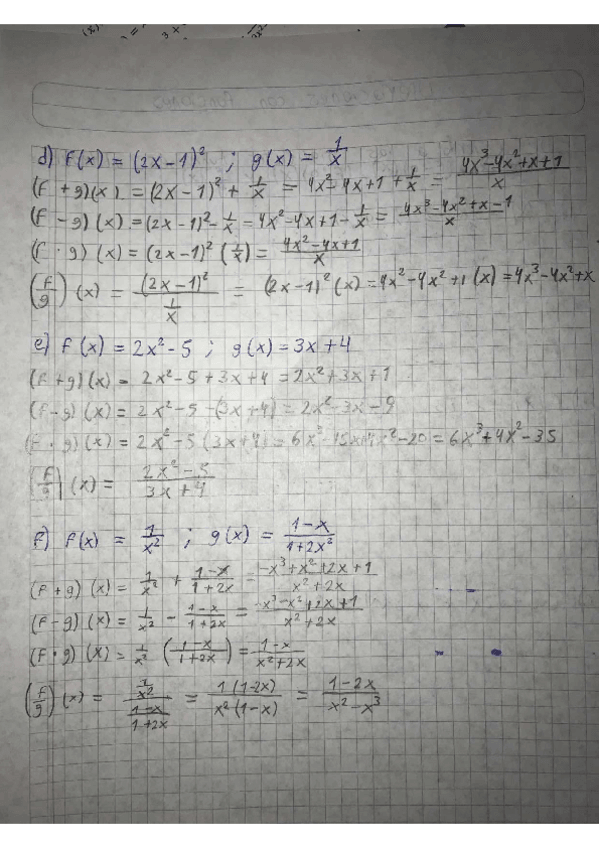 d) f(x) = (2x-1)² ; g(x) = 1/x
(f + g)(x) = (2x-1)² + 1/x = 4x²-4x+1 + 1/x = (4x³-4x²+x+1)/x
(f - g)(x) = (2x-1)² - 1/x = 4x²-4x+1 - 1/x = (4x³-4x²+x-1)/x
(f · g)(x) = (2x-1)² (1/x) = (4x²-4x+1)/x
(f/g)(x) = (2x-1)²/(1/x) = (2x-1)² (x) = 4x²-4x²+1 (x) = 4x³-4x²+x
e) f(x) = 2x²-5 ; g(x) = 3x+4
(f + g)(x) = 2x²-5+3x+4 = 2x²+3x+1
(f - g)(x) = 2x²-5-(3x+4) = 2x²-3x-9
(f · g)(x) = 2x²-5 (3x+4) = 6x³-15x+4x²-20 = 6x³+4x²-35
(f/g)(x) = (2x²-5)/(3x+4)
f) f(x) = 1/x² ; g(x) = (1-x)/(1+2x²)
(f + g)(x) = 1/x² + (1-x)/(1+2x) = (-x³+x²+2x+1)/(x²+2x)
(f - g)(x) = 1/x² - (1-x)/(1+2x) = (-x³-x²+2x+1)/(x²+2x)
(f · g)(x) = 1/x² ((1-x)/(1+2x)) = (1-x)/(x²+2x)
(f/g)(x) = (1/x²)/((1-x)/(1+2x)) = 1(1-2x)/(x²(1-x)) = (1-2x)/(x²-x³)